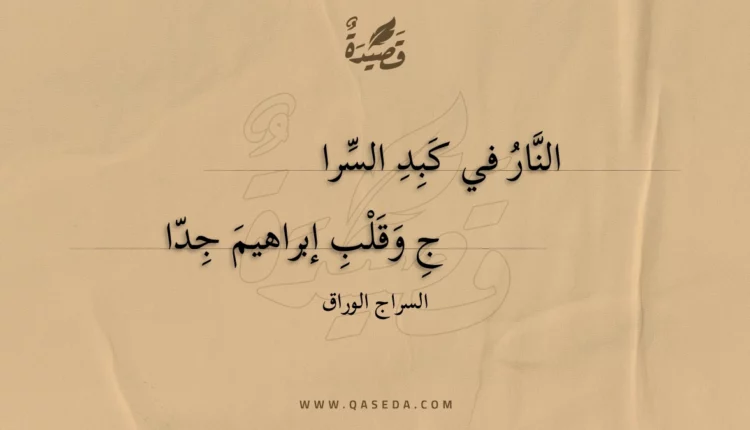 قَصِيدَةٌ
النَّارُ في كَبِدِ السِّرا
جِ وَقَلْبِ إبراهيمَ جِدّا
السراج الوراق
WWW.QASEDA.COM